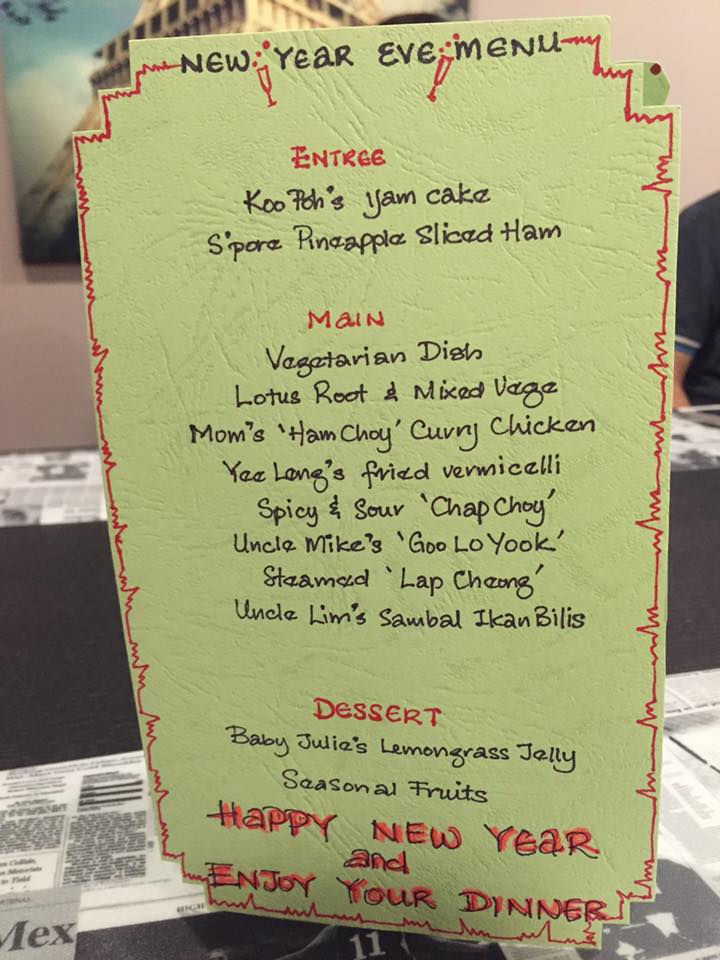 NEW YEAR EVE MENU
ENTREE
Koo Poh's yam cake
S'pore Pineapple Sliced Ham
MAIN
Vegetarian Dish
Lotus Root & Mixed Vege
Mom's 'Ham Choy' Curry Chicken
Yee Leng's fried vermicelli
Spicy & Sour 'Chap Choy'
Uncle Mike's 'Goo Lo Yook'
Steamed 'Lap Cheong'
Uncle Lim's Sambal Ikan Bilis
DESSERT
Baby Julie's Lemongrass Jelly
Seasonal Fruits
HAPPY NEW YEAR
and
ENJOY YOUR DINNER
Mex
11